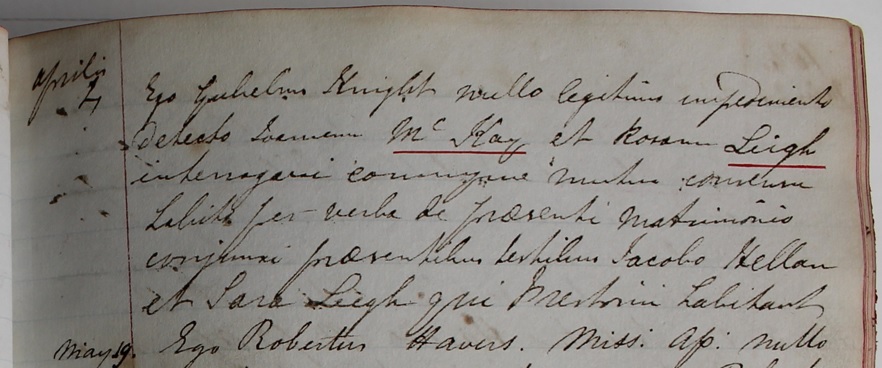 Aprilis Ego Gulielmus Knight nullo legitimo impedimento
4 detecto Joannem Mc Kay et Rosam Leigh
interrogavi eorumque mutuo consensu
habito per verba de præsenti matrimonio
conjunxi præsentibus testibus Jacobo Hellan
et Sara Leigh qui Prestonii habitant
May 19. Ego Robertus Havers. Miss. Ap. nullo